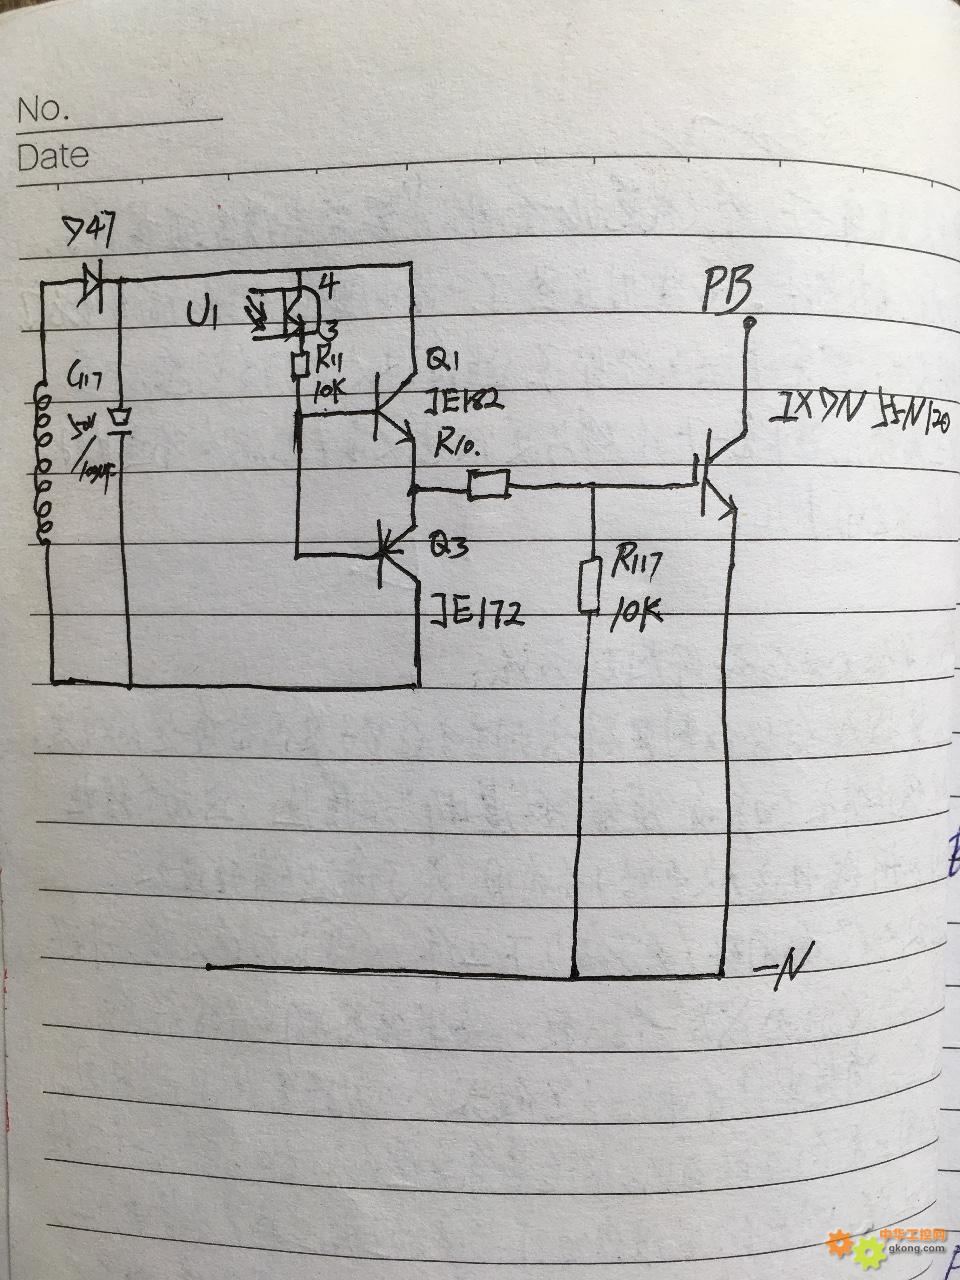 No.
Date
D47
4
U1
3
R11
10K
C117
50V
/100uF
Q1
JE182
R10.
PB
IXDN 55N120
Q3
JE172
R117
10K
-N
中华工控网
gkong.com